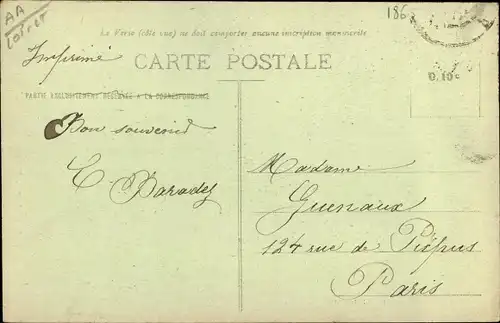 AA
Loiret
186
Le Verso (côté vue) ne doit comporter aucune inscription manuscrite
Imprimé
CARTE POSTALE
0.10c
PARTIE EXCLUSIVEMENT RÉSERVÉE A LA CORRESPONDANCE
Bon souvenir
Madame
Guenaux
124 rue de Picpus
Paris